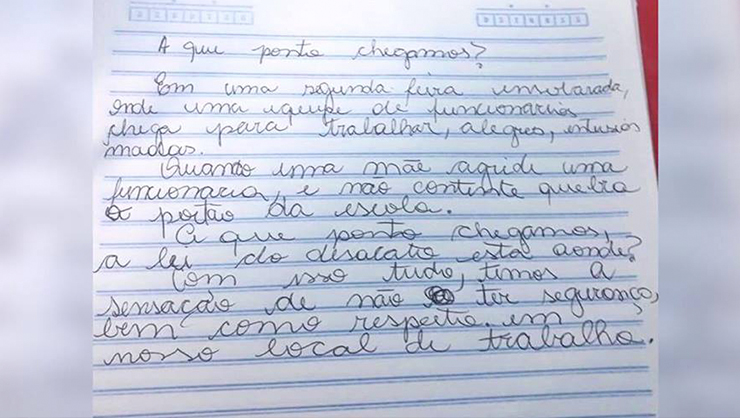 A que ponto chegamos?
Em uma segunda feira ensolarada,
onde uma equipe de funcionarios
chega para trabalhar, alegres, entusias
madas.
Quando uma mãe agride uma
funcionaria, e não contente quebra
o portão da escola.
A que ponto chegamos,
a lei do desacato está aonde?
Com isso tudo, temos a
sensação de não ter segurança,
bem como respeito em
nosso local de trabalho.